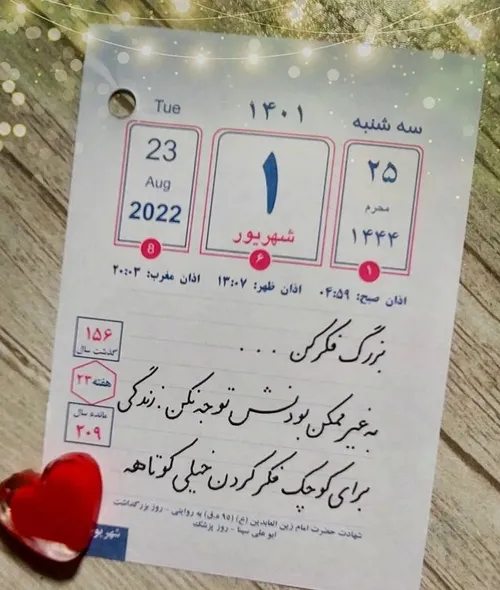 سه شنبه
۱۴۰۱
Tue
۲۵
محرم
۱۴۴۴
۱
۱
شهریور
۶
23
Aug
2022
8
اذان صبح: ۰۴:۵۹ اذان ظهر: ۱۳:۰۷ اذان مغرب: ۲۰:۰۳
بزرگ فکر کن ...
به غیر ممکن بودنش توجه نکن. زندگی
برای کوچک فکر کردن خیلی کوتاهه
۱۵۶
گذشت سال
هفته ۲۳
مانده سال
۲۰۹
شهادت حضرت امام زین العابدین (ع) (۹۵ ه.ق) به روایتی - روز بزرگداشت
ابو علی سینا - روز پزشک
شهریور